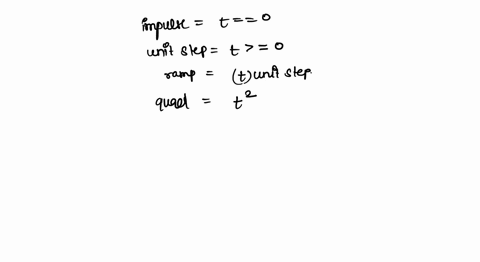 impulse = t == 0
unit step = t >= 0
ramp = (t) unit step.
quad = t²